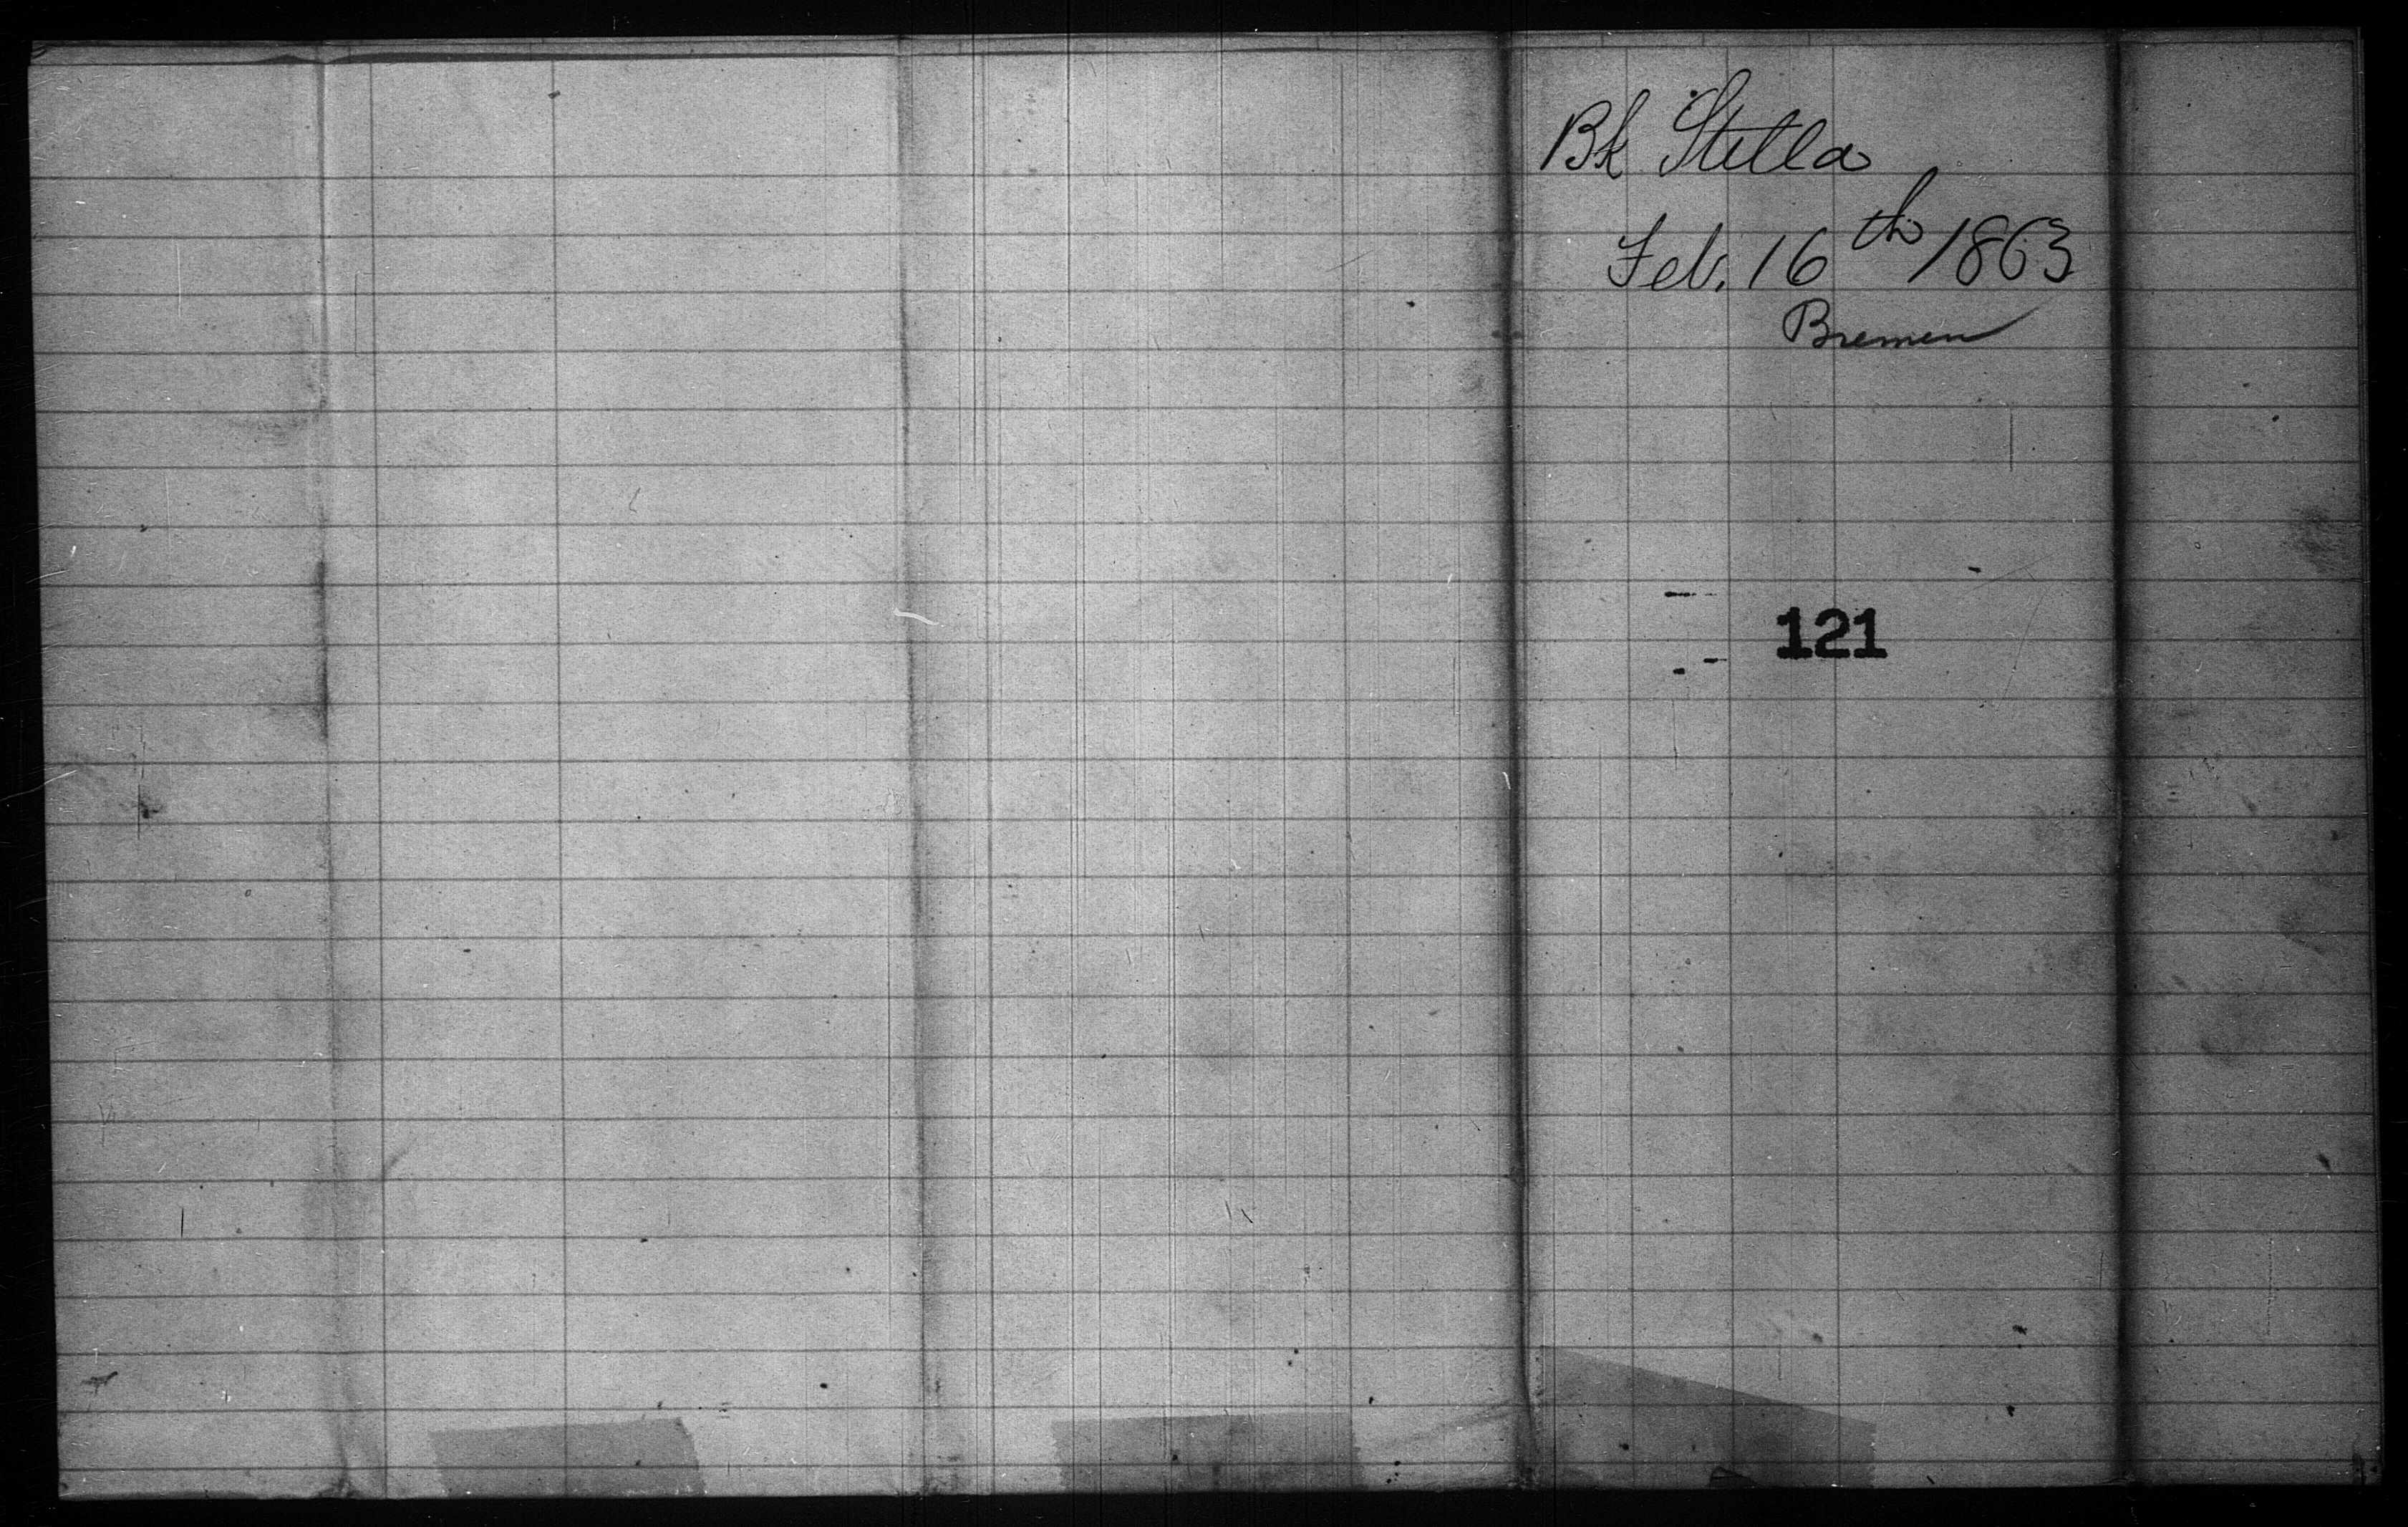 Bk Stella
Feb. 16th 1863
Bremen
121